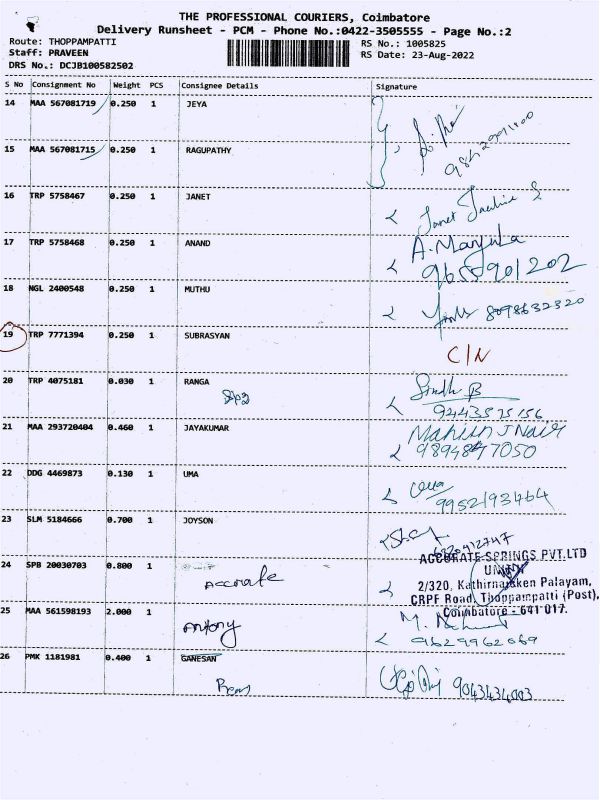 THE PROFESSIONAL COURIERS, Coimbatore
Delivery Runsheet - PCM - Phone No.:0422-3505555 - Page No.:2
Route: THOPPAMPATTI
RS No.: 1005825
Staff: PRAVEEN
RS Date: 23-Aug-2022
DRS No.: DCJB100582502
S No Consignment No Weight PCS Consignee Details Signature
14 MAA 567081719 0.250 1 JEYA
15 MAA 567081715 0.250 1 RAGUPATHY
16 TRP 5758467 0.250 1 JANET
Janet
17 TRP 5758468 0.250 1 ANAND
A. Manjula
9655901202
18 NGL 2400548 0.250 1 MUTHU
8098632320
19 TRP 7771394 0.250 1 SUBRASYAN
C/N
20 TRP 4075181 0.030 1 RANGA
Sindh B
9443575156
21 MAA 293720404 0.460 1 JAYAKUMAR
J Nair
22 DDG 4469873 0.130 1 UMA
Uma
9952193464
23 SLM 5184666 0.700 1 JOYSON
24 SPB 20030703 0.800 1
Accurate
ACCURATE SPRINGS PVT.LTD
2/320, Kathirnaicken Palayam,
CRPF Road, Thoppampatti (Post),
Coimbatore - 641 017.
25 MAA 561598193 2.000 1
Antony
9629962069
26 PMK 1181981 0.400 1 GANESAN
9043434003